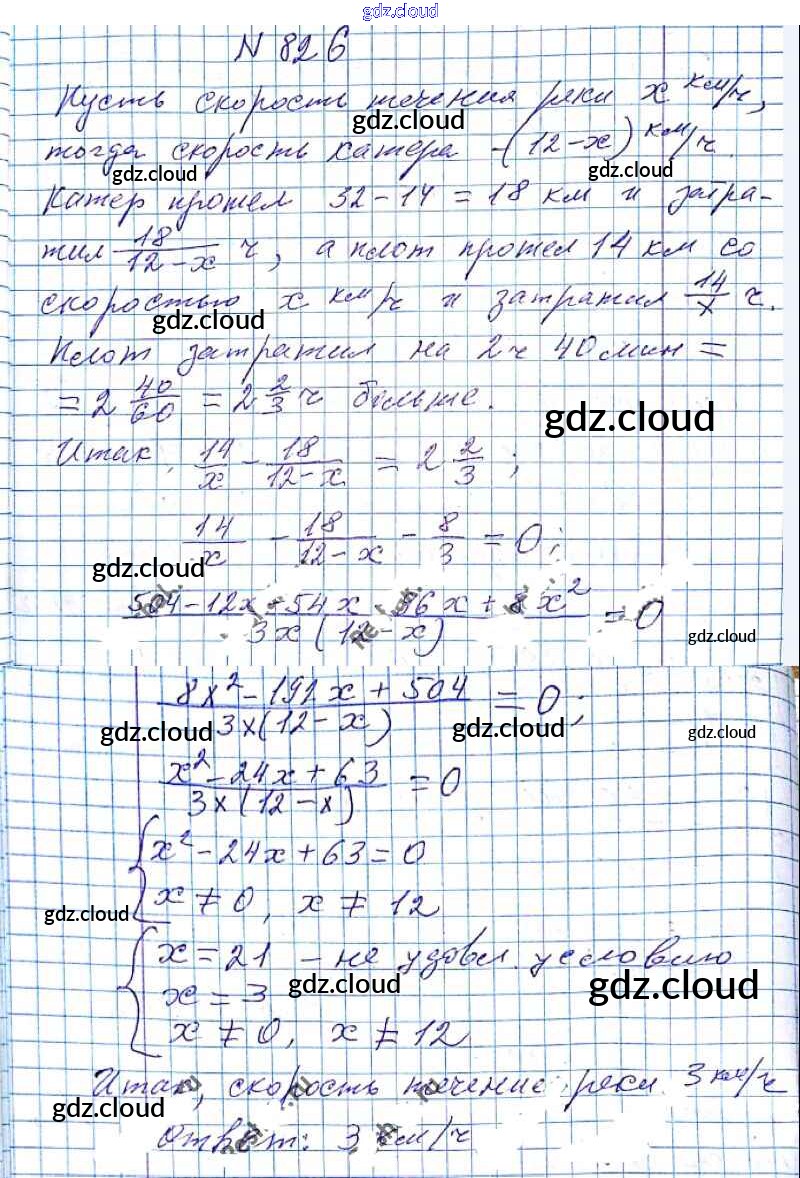 gdz.cloud
N 826
Пусть скорость течения реки x км/ч,
gdz.cloud
тогда скорость катера - (12-x) км/ч.
gdz.cloud gdz.cloud
Катер прошел 32-14 = 18 км и затра-
тил 18/(12-x) ч, а плот прошел 14 км со
скоростью x км/ч и затратил 14/x ч.
gdz.cloud
Плот затратил на 2ч 40 мин =
= 2 40/60 = 2 2/3 ч больше.
gdz.cloud
Итак, 14/x - 18/(12-x) = 2 2/3 ;
14/x - 18/(12-x) - 8/3 = 0;
gdz.cloud
(504-12x-54x-96x+8x²)/(3x(12-x)) = 0
gdz.cloud
(8x²-192x+504)/(3x(12-x)) = 0;
gdz.cloud gdz.cloud gdz.cloud
(x²-24x+63)/(3x(12-x)) = 0
{x²-24x+63=0
x ≠ 0, x ≠ 12
gdz.cloud
{x=21 - не удовл. условию
x=3
gdz.cloud gdz.cloud
x ≠ 0, x ≠ 12
Итак, скорость течение реки 3 км/ч
gdz.cloud
Ответ: 3 км/ч